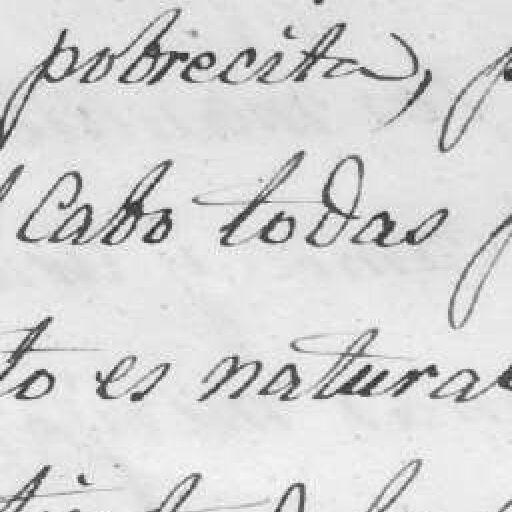 pobrecita),
Cabo todas
to es natura